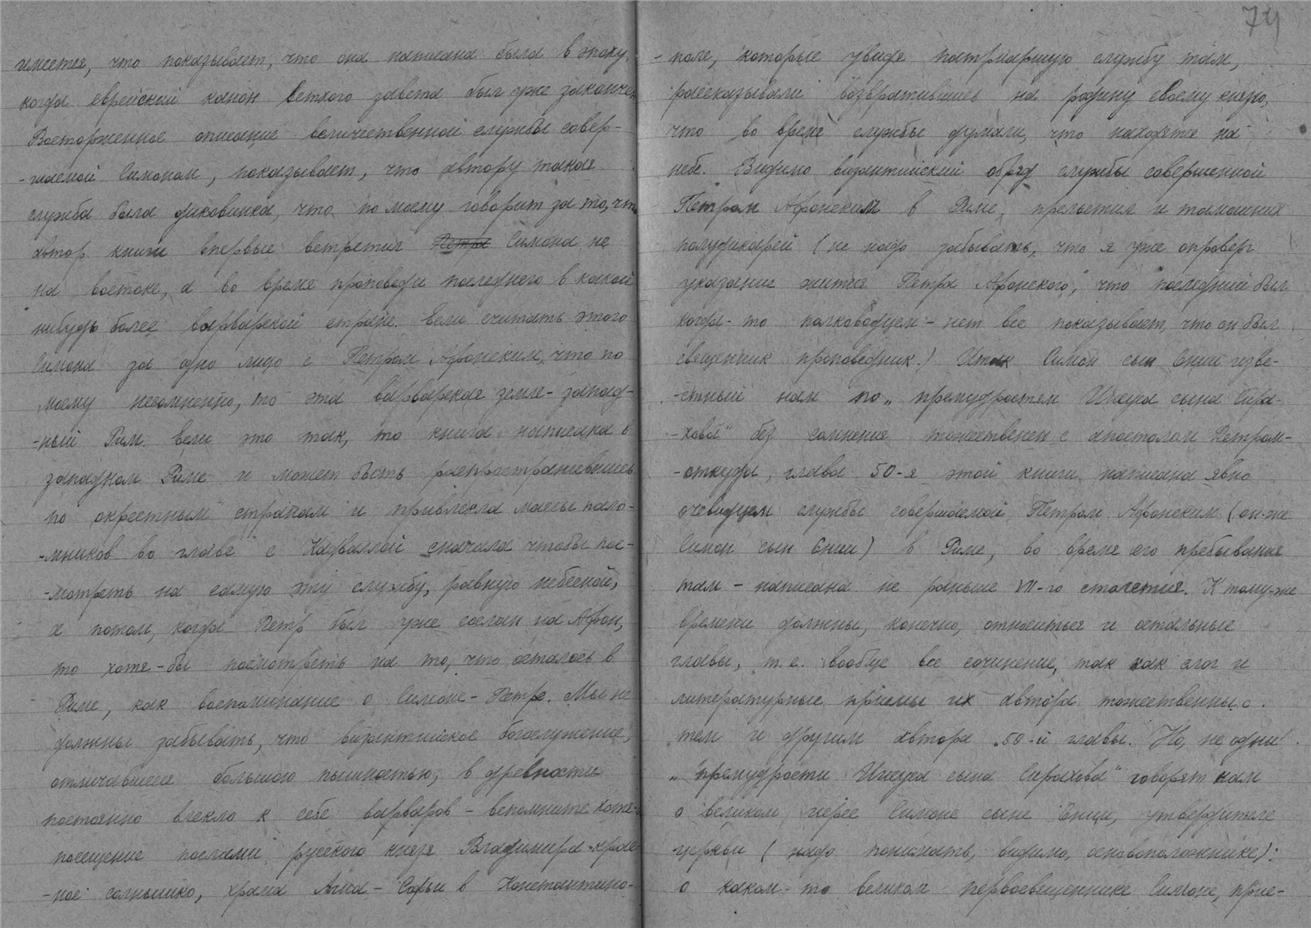 имеется, что показывает, что она написана была в эпоху,
когда еврейский канон Ветхого завета был уже закончен
Восторженные описание величественной службы совер-
-шаемой Симоном, показывает, что автору такая
служба была диковинка, что по моему говорит за то, что
автор книги впервые встретил Петра Симона не
на востоке, а во время проповеди последнего в какой
нибудь более варварской стране. Если считать этого
Симона за одно лицо с Петром Афонским, что по
моему несомненно, то эта варварская земля - запад-
-ный Рим. Если это так, то книга написана в
западном Риме и может быть распространившись
по окрестным странам и привлекла массы пало-
-мников во главе с сначала чтобы пос-
-мотреть на самую эту службу, равную небесной,
а потом, когда Петр был уже сослан на Афон,
то хотя-бы посмотреть на то, что осталось в
Риме, как воспоминание о Симоне-Петре. Мы не
должны забывать, что византийское богослужение,
отличавшееся большою пышностью, в древности
постоянно влекло к себе варваров - вспомните хотя-
посещение послами русского князя Владимира-крас
-ное солнышко, храма Айа-Софьи в Константино-
74
-поле, которые увидя патриаршую службу там,
рассказывали возвратившись на родину своему князю,
что во время службы думали, что находятся на
небе. Видимо византийский обряд службы совершенной
Петром Афонским в Риме, прельстил и тамошних
полудикарей (не надо забывать, что я уже опроверг
указание жития Петра Афонского, что последний был
когда-то полководцем - нет все показывает, что он был
священник проповедник!) Итак Симон сын Онии изве-
-стный нам по „премудростям Иисуса сына Сира-
-хова" без сомнения тожественен с апостолом Петром-
-откуда, глава 50-я этой книги написана явно
очевидцем службы совершаемой Петром Афонским (он-же
Симон сын Онии) в Риме, во время его пребывания
там - написана не раньше VII-го столетия. К тому-же
времени должны, конечно, относиться и остальные
главы, т.е. вообще все сочинение, так как слог и
литературные приемы их автора тожественны с
тем и другим автора 50-й главы. Но, не одни
„премудрости Иисуса сына Сирахова" говорят нам
о великом иерее Симоне сыне Онии, утвердителе
церкви (надо понимать, видимо, основоположнике):
о каком-то великом первосвященнике Симоне, прие-